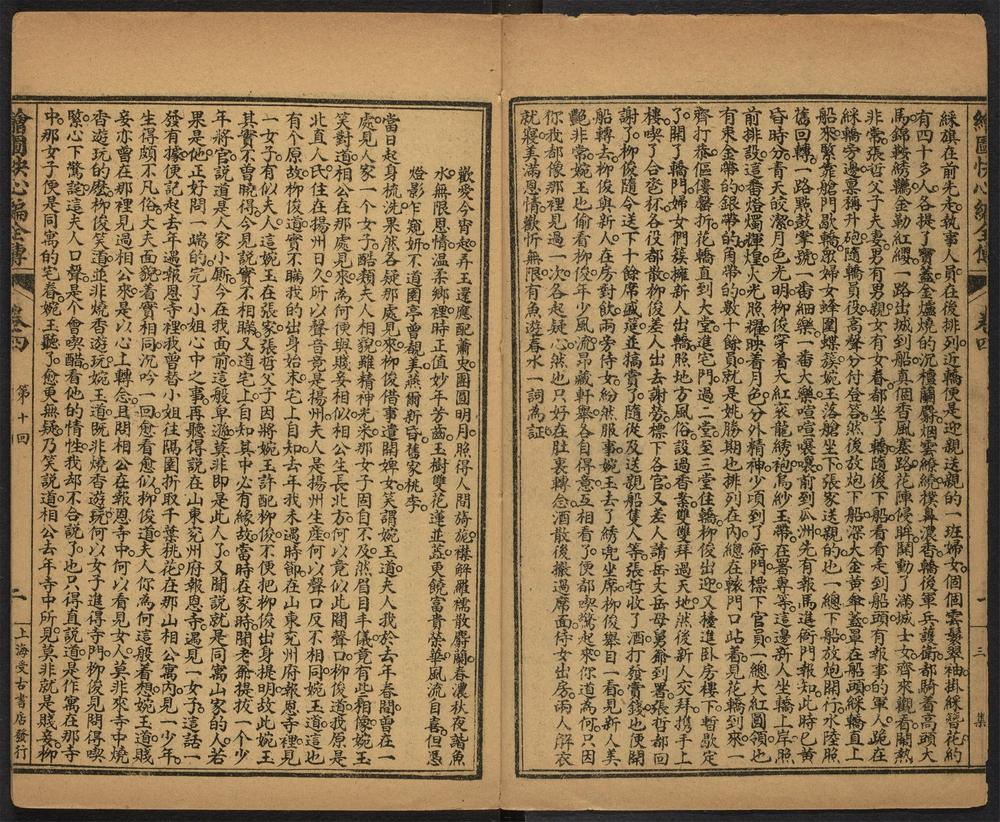 繪圖快心編全傳 卷四 一 三集
綵旗在前先走執事人員在後排列近轎便是迎親送親的一班婦女個個雲鬟翠袖掛綵簪花約
有四十多人各提了寶蓋金爐燒的沉檀蘭麝烟雲繚繞撲鼻濃香轎後軍兵護衛都騎着高頭大
馬錦鞍綉韂金勒紅纓一路出城到船真個香風塞路花陣侵眸鬨動了滿城士女齊來觀看鬧熱
非常張哲父子夫妻男有男親女有女眷都坐了轎隨後下船看看走到船頭有報事的軍人跪在
綵轎旁邊稟稱升砲隨轎員役高聲分付登答然後放炮下船深大金黃傘蓋罩在船頭綵轎直上
船來緊靠艙門歇轎眾婦女蜂圍蝶簇婉玉落艙坐下張家送親的也一總下船放炮開行水陸照
舊回轉一路點鼓掌號一番細樂一番大樂喧喧嚷嚷前到瓜洲先有報馬進衙門報知此時已黃
昏時分青天皎潔月色光明柳俊穿着大紅袞龍綉袍烏紗玉帶在署專等這邊新人坐轎上岸照
前排設這番燈燭輝煌火光照耀映着月色分外精神少頃到了衙門標下官員一總大紅圓領也
有束金帶的銀帶的角帶的數十餘員就是姚勝期也排列在內總在轅門口站着見花轎到來一
齊打恭傴僂罄折花轎直到大堂進宅門過二堂至三堂住轎柳俊出迎又擡進卧房樓下暫歇定
了開了轎門婦女們簇擁新人出轎照地方風俗設過香案雙雙拜過天地然後新人交拜携手上
樓喫了合卺杯各役都散柳俊差人出去謝勞標下各官又差人請岳丈岳母舅爺到署張哲都回
謝了柳俊隨令送下十餘席盛筵並犒賞了隨從及送親船隻人等張哲收了酒打發賞錢也便開
船轉去柳俊與新人在房對飲兩旁侍女紛然服事婉玉去了綉兜坐席柳俊舉目一看見新人美
艷非常婉玉也偷看柳俊年少風流昂藏軒舉各自得意互相看了便都喫驚起來你道為何只因
你我都像那裡見過一次各各起疑心然也只好在肚裏轉念酒散後撤過席面侍女出房兩人解衣
就寢美滿恩情歡忻無限有魚遊春水一詞為証
歡愛今宵起弄玉還應配蕭史團圓明月照得人間旖旎襟解羅襦散麝蘭春濃秋夜諧魚
水無限恩情溫柔鄉裡時正值妙年芳齒玉樹雙花蓮並蕊更饒富貴榮華風流自喜但憑
燈影乍窺妍不道園亭曾覿美燕爾新昏舊家桃李
當日起身梳洗果然各疑那處見來柳俊借事遣開婢女笑謂婉玉道夫人我於去年春間曾在一
處見人家一個女子酷類夫人相貌雖精神光釆那女子固自不及然眉目丰儀竟有些相像婉玉
笑對道相公在那處見來為何便與賤妾相似相公生長北方何以竟似此間聲口柳俊道我原是
北直人氏住在揚州日久所以聲音竟是揚州夫人是揚州生產何以聲口反不相同婉玉道這也
有個原故柳俊道實不瞞我的出身始末宅上自知去年我未遇時節在山東兗州府報恩寺裡見
一女子有似夫人這婉玉在張家張哲父子因將婉玉許配柳俊不便把柳俊出身提明故此婉玉
其實不曾曉得今見說實不相瞞又道宅上自知其中必有緣故當時在家時聞老爺提拔一個少
年將官說道是人家小廝今在我面前這般卑遜莫非即是此人了又聞說就是同寓山家的人若
果是他正好問一端的完了小姐心中之事再聽得說在山東兗州府報恩寺遇見一女子這話一
發有據便記起去年遇報恩寺裡我曾替小姐往隔園折取千葉桃花在那山相公寓內見一少年
生得頗不凡俗丈夫面貌着實相同沉吟一回愈看愈似柳俊道夫人你為何這般着想婉玉道賤
妾亦曾在那裡見過相公來是以心上轉念且問相公在報恩寺中何以看見女人莫非來寺中燒
香遊玩的麼柳俊笑道並非燒香遊玩婉玉道既非燒香遊玩何以女子進得寺門柳俊見問得喫
緊心下驚詫這夫人口聲是個會喫醋看他的情性我却不合說了也只得直說道是作寓在那寺
中那女子便是同寓的宅眷婉玉聽了愈更無疑乃笑說道相公去年寺中所見非就是賤妾柳
繪圖快心編全傳 卷四 第十回 二 上海受古書店發行